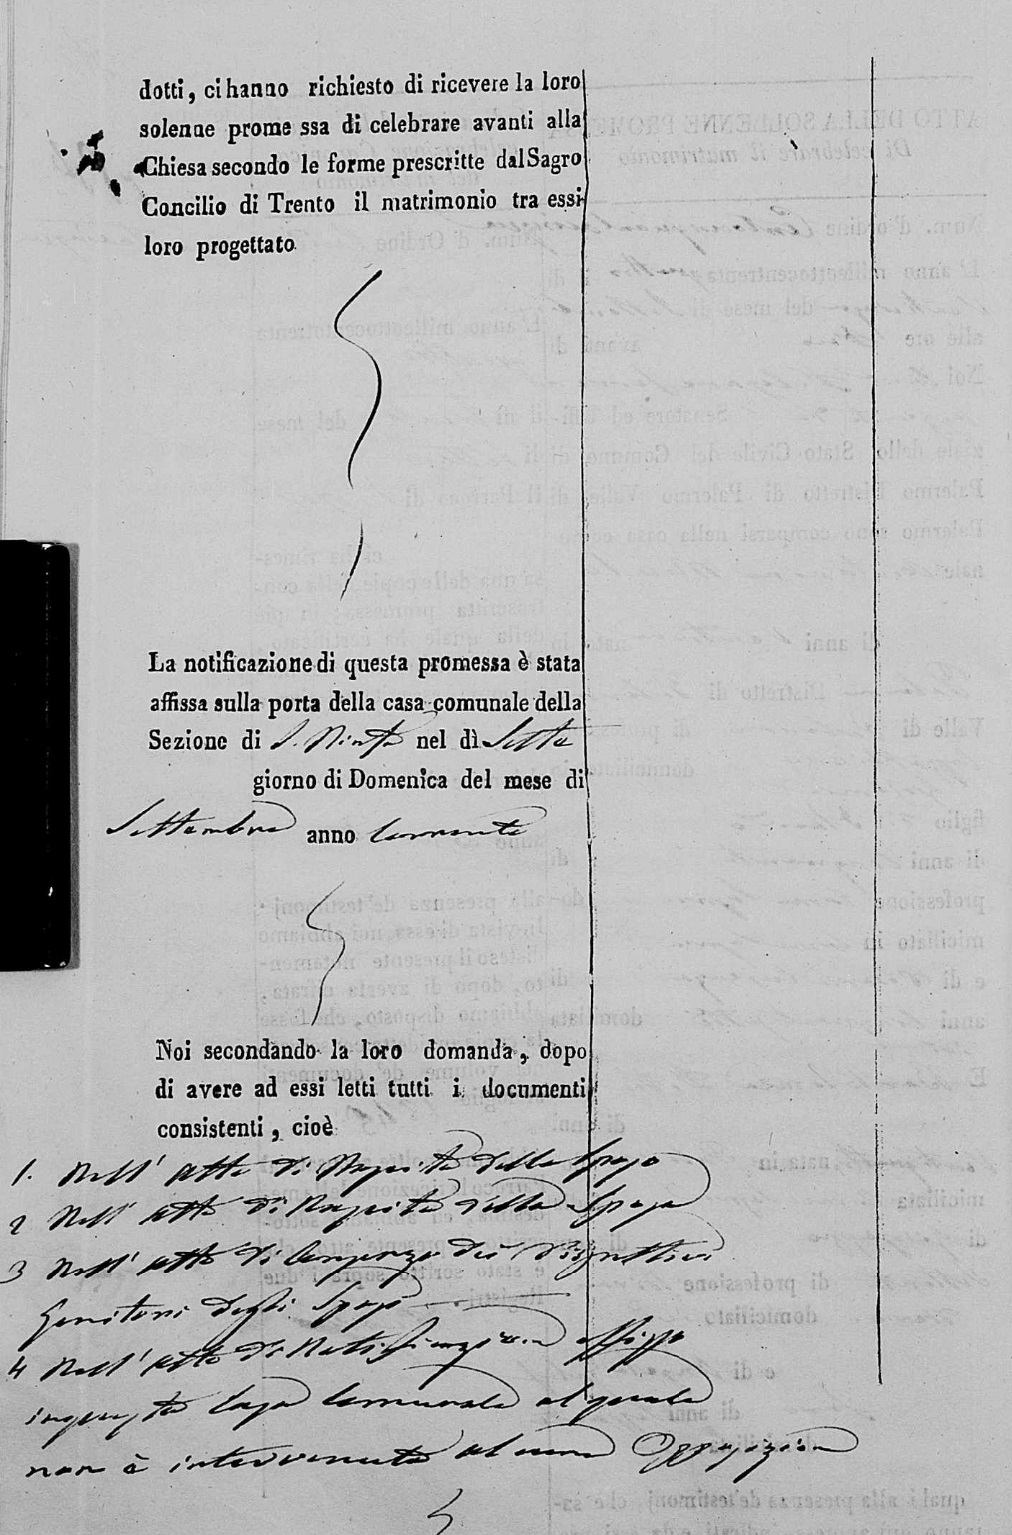 dotti, ci hanno richiesto di ricevere la loro
solenne prome ssa di celebrare avanti alla
Chiesa secondo le forme prescritte dal Sagro
Concilio di Trento il matrimonio tra essi
loro progettato
La notificazione di questa promessa è stata
affissa sulla porta della casa comunale della
Sezione di S. Ninfa nel dì Sette
giorno di Domenica del mese di
Settembre anno Corrente
Noi secondando la loro domanda, dopo
di avere ad essi letti tutti i documenti
consistenti, cioè
1. Nell' atto di Nascita dello Sposo
2 Nell' atto di Nascita della Sposa
3 Nell' atto di Consenzo dei rispettivi
Genitori degli Sposi
4 Nell' atto di Notificazione affissa
in questa Casa Comunale al quale
non è intervenuta alcuna Opposizione